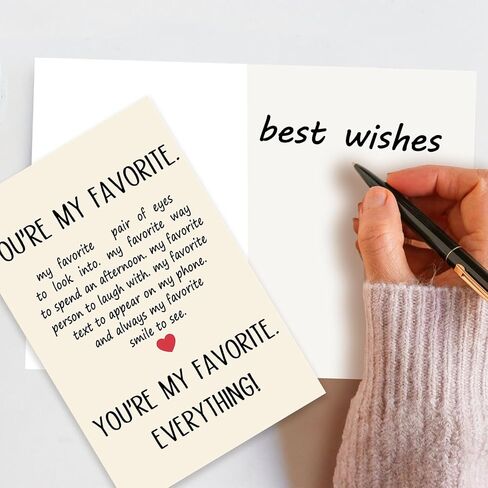 YOU'RE MY FAVORITE.
my favorite pair of eyes
to look into. my favorite way
to spend an afternoon. my favorite
person to laugh with. my favorite
text to appear on my phone.
and always my favorite
smile to see.
YOU'RE MY FAVORITE.
EVERYTHING!
best wishes